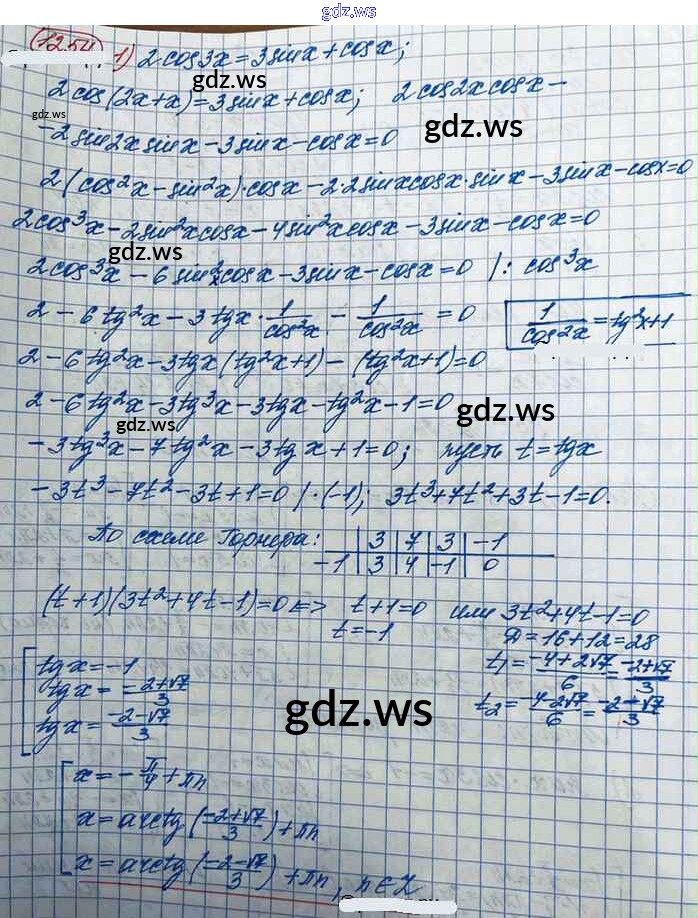 gdz.ws
1254 1) 2cos3x=3sinx+cosx;
gdz.ws gdz.ws
2cos(2x+x)=3sinx+cosx; 2cos2xcosx-
-2sin2xsinx-3sinx-cosx=0 gdz.ws
2(cos²x-sin²x)·cosx-2·2sinxcosx·sinx-3sinx-cosx=0
2cos³x-2sin²xcosx-4sin²xcosx-3sinx-cosx=0
gdz.ws
2cos³x-6sin²xcosx-3sinx-cosx=0 /: cos³x
2-6tg²x-3tgx·1/cos²x-1/cos²x=0 1/cos²x=tg²x+1
2-6tg²x-3tgx(tg²x+1)-(tg²x+1)=0
2-6tg²x-3tg³x-3tgx-tg²x-1=0 gdz.ws
gdz.ws
-3tg³x-7tg²x-3tgx+1=0; пусть t=tgx
-3t³-7t²-3t+1=0 /·(-1); 3t³+7t²+3t-1=0.
По схеме Горнера: | 3 | 7 | 3 | -1
-1 | 3 | 4 | -1 | 0
(t+1)(3t²+4t-1)=0 <=> t+1=0 или 3t²+4t-1=0
t=-1 D=16+12=28
tgx=-1 t₁=(-4+2√7)/6=(-2+√7)/3
tgx=(-2+√7)/3 t₂=(-4-2√7)/6=(-2-√7)/3
tgx=(-2-√7)/3 gdz.ws
x=-π/4+πn
x=arctg((-2+√7)/3)+πn
x=arctg((-2-√7)/3)+πn, n∈Z